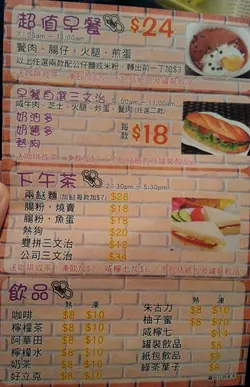 超值早餐 $24
7:00am - 11:00am
餐肉、腸仔、火腿、煎蛋
以上任選兩款配公仔麵或米粉，轉出前一丁加$3
早餐自選三文治
鹹牛肉、芝士、火腿、炒蛋、餐肉(任選二款)
奶油多
奶醬多
熱狗
每款 $18
下午茶
2:30pm - 5:30pm
兩餸麵 (加餸每款加$7) $28
腸粉、燒賣 $18
腸粉、魚蛋 $18
熱狗 $20
雙拼三文治 $18
公司三文治 $34
飲品
熱 凍
咖啡 $8 $10
檸檬茶 $8 $10
阿華田 $8 $10
檸檬水 $8 $10
奶茶 $8 $10
好立克 $8 $10
熱 凍
朱古力 $8 $10
柚子蜜 $8 $10
咸檸七 $13
罐裝飲品 $8
紙包飲品 $8
綠茶葉子 $8